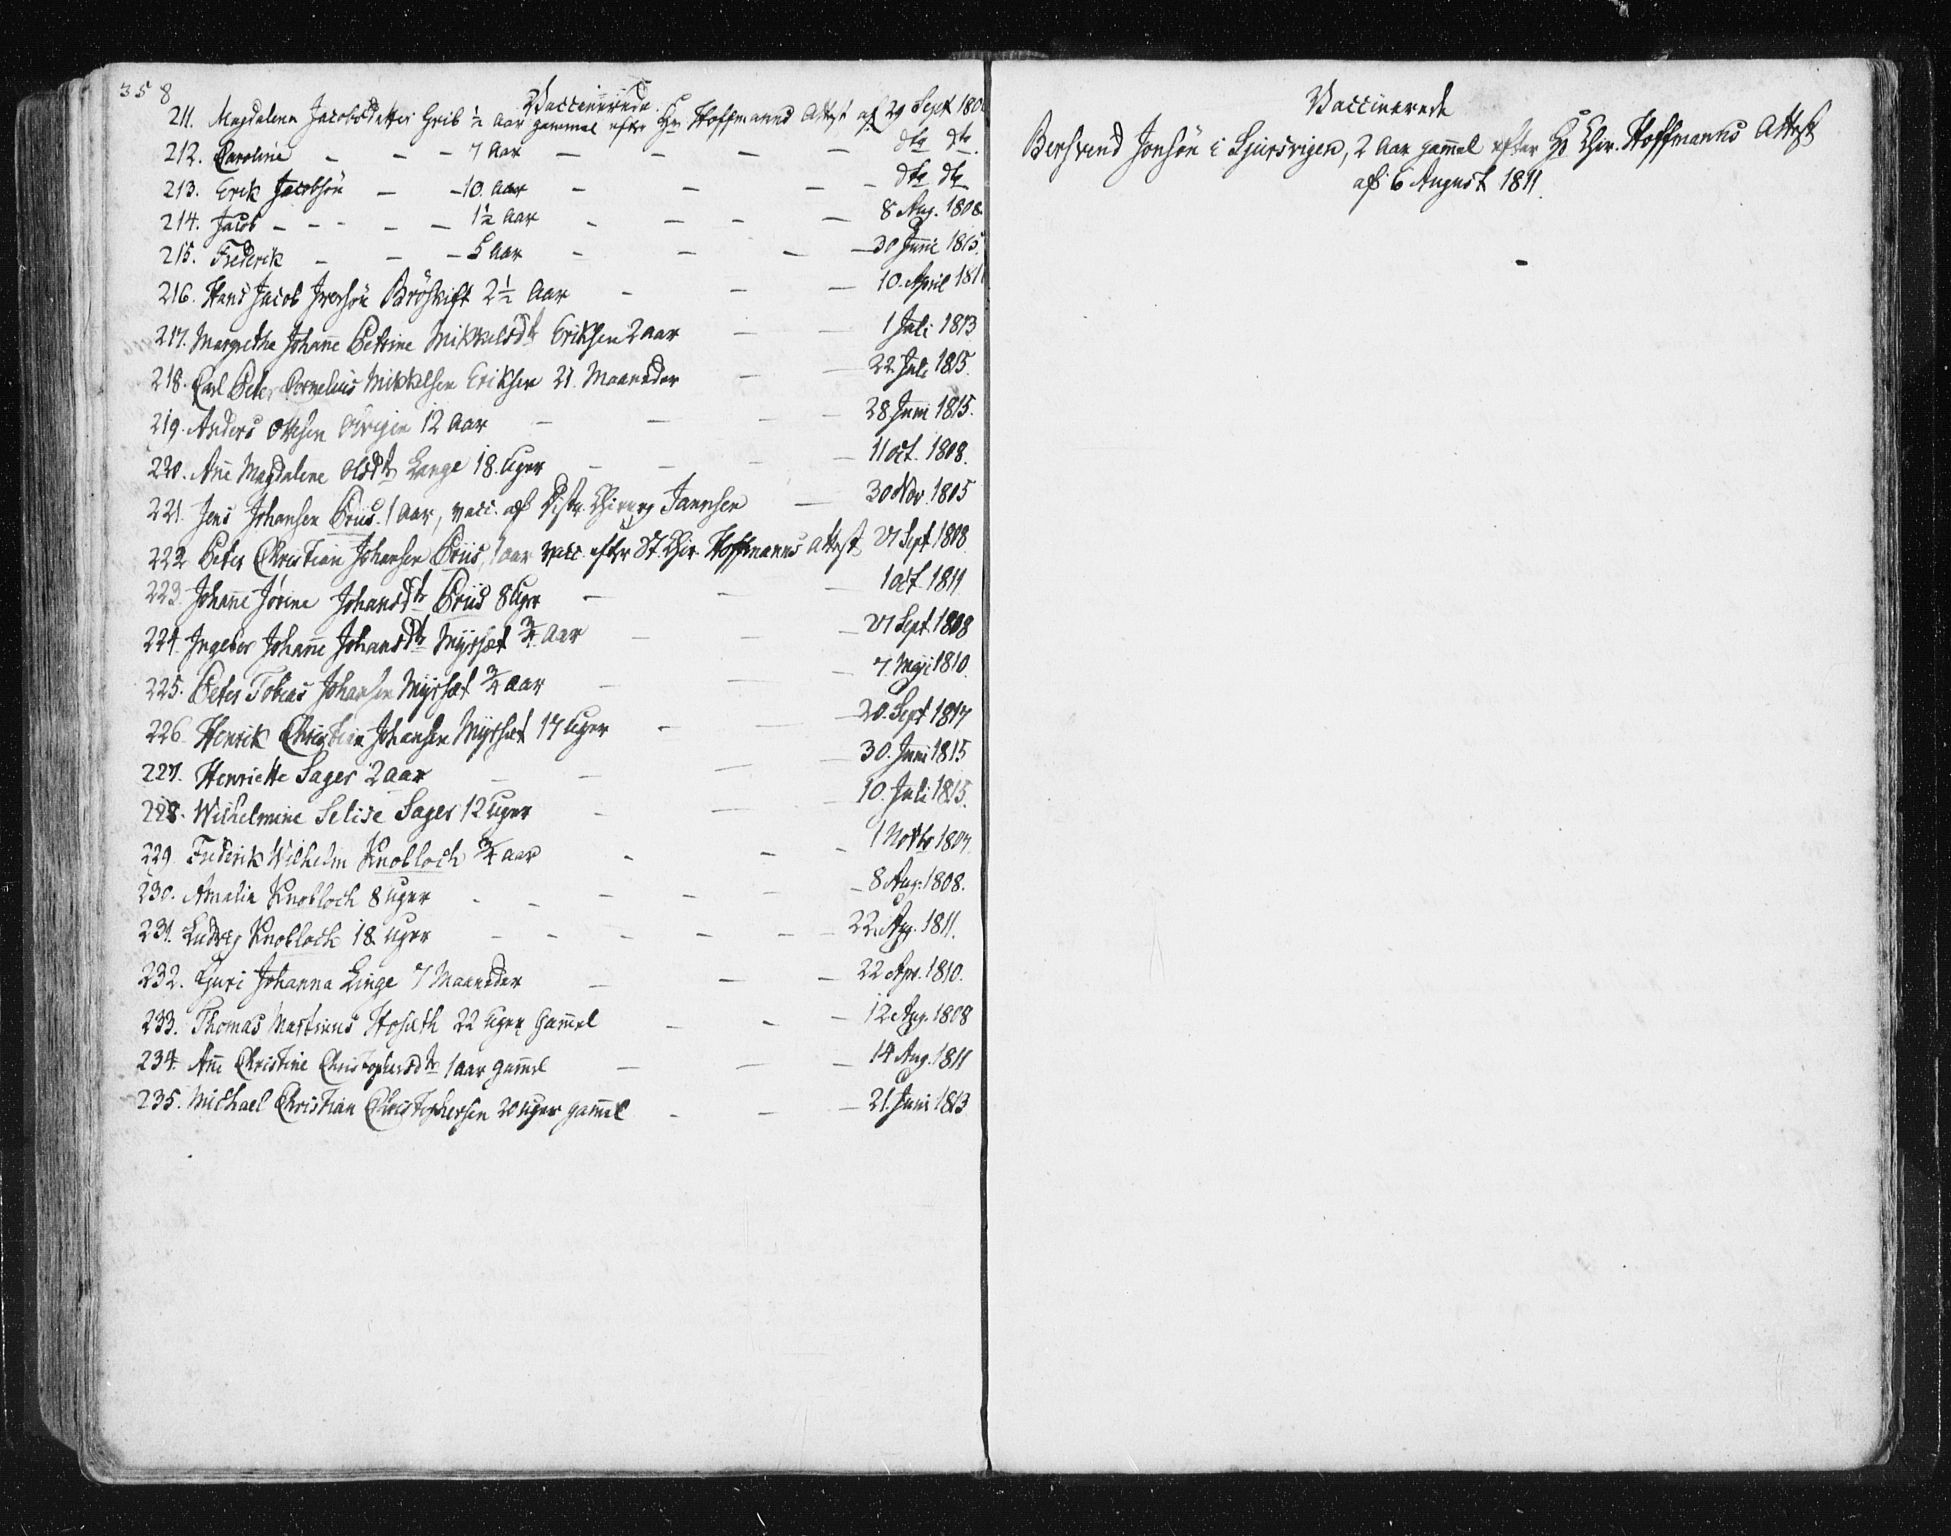 358
Vaccinerede
211. Magdalena Jacobsdatter Grib ½ Aar gammel efter Hr Hoffmanns Attest af 29 Sept 180
212. Caroline – – – 7 Aar – – – – dto dto
213. Erik Jacobsön – – 10. Aar – – – – dto dto
214. Jacob – – – – – 1½ Aar – – – – 8 Aug. 1808.
215. Frederik – – – 5 Aar – – – – 30 Junii 1815.
216. Hans Jacob Iversön Bröskift 2½ Aar – – – 10. April 181
217. Margrethe Johanne Petrine Mikkelsdtr Eriksen 2 aar – – 1 Juli 1813
218. Carl Peter Cornelius Mikkelsen Eriksen 21. Maaneder – – 22 Juli 1815.
219. Anders Olsen 12 Aar – – – – 28 Juni 1815.
220. Ane Magdalene Olsdtr Lange 18. Uger – – – – 11 Oct. 1808.
221. Jens Johansen Criis. 1 Aar, vacc. af Distr. Chirurg Jannsen – 30 Nov. 1805
222 Peter Christian Johansen Criis, 1 aar vacc. efter St. Chir. Hoffmanns Attest 21 Sept 1808
223. Johanne Jörine Johansdtr Criis 8 Uger – – – 1 Oct. 1811
224. Ingebor Johanne Johansdtr Myrsæt ¾ Aar – – – 21 Sept 1808
225. Peter Tobias Johansen Myrsæt ¾ Aar – – – 7. Maji 1810.
226. Henrik Christian Johansen Myrsæt 17 Uger – – – 20. Sept 1817
227. Henriette Sager 2 aar – – – – 30. Juni 1815
228. Wilhelmine Selise Sager 12 Uger – – – 10. Juli 1815.
229. Frederik Wilhelm Knobloch ¾ aar – – – 1 Novbr 1807.
230. Amalia Knobloch 8 uger – – – – – – 8 Aug. 1808.
231. Ludvig Knobloch 18. uger – – – – – – – 22. Aug. 1811.
232. Guri Johanna Linge 7 Maaneder – – – 22 Apr. 1810.
233. Thomas Martinus Hoseth 22 uger gammel – – – 12 Aug. 1808
234. Ane Christine Christophersdtr 1 aar gammel – – – 14 Aug. 1811
235. Michael Christian Christophersen 20 uger gammel – – – 21. Juni 1813
Vaccinerede
Bersvend Jonsön i, 2 Aar gammel efter Hr Chir. Hoffmanns Attest
af 6 August 1811.